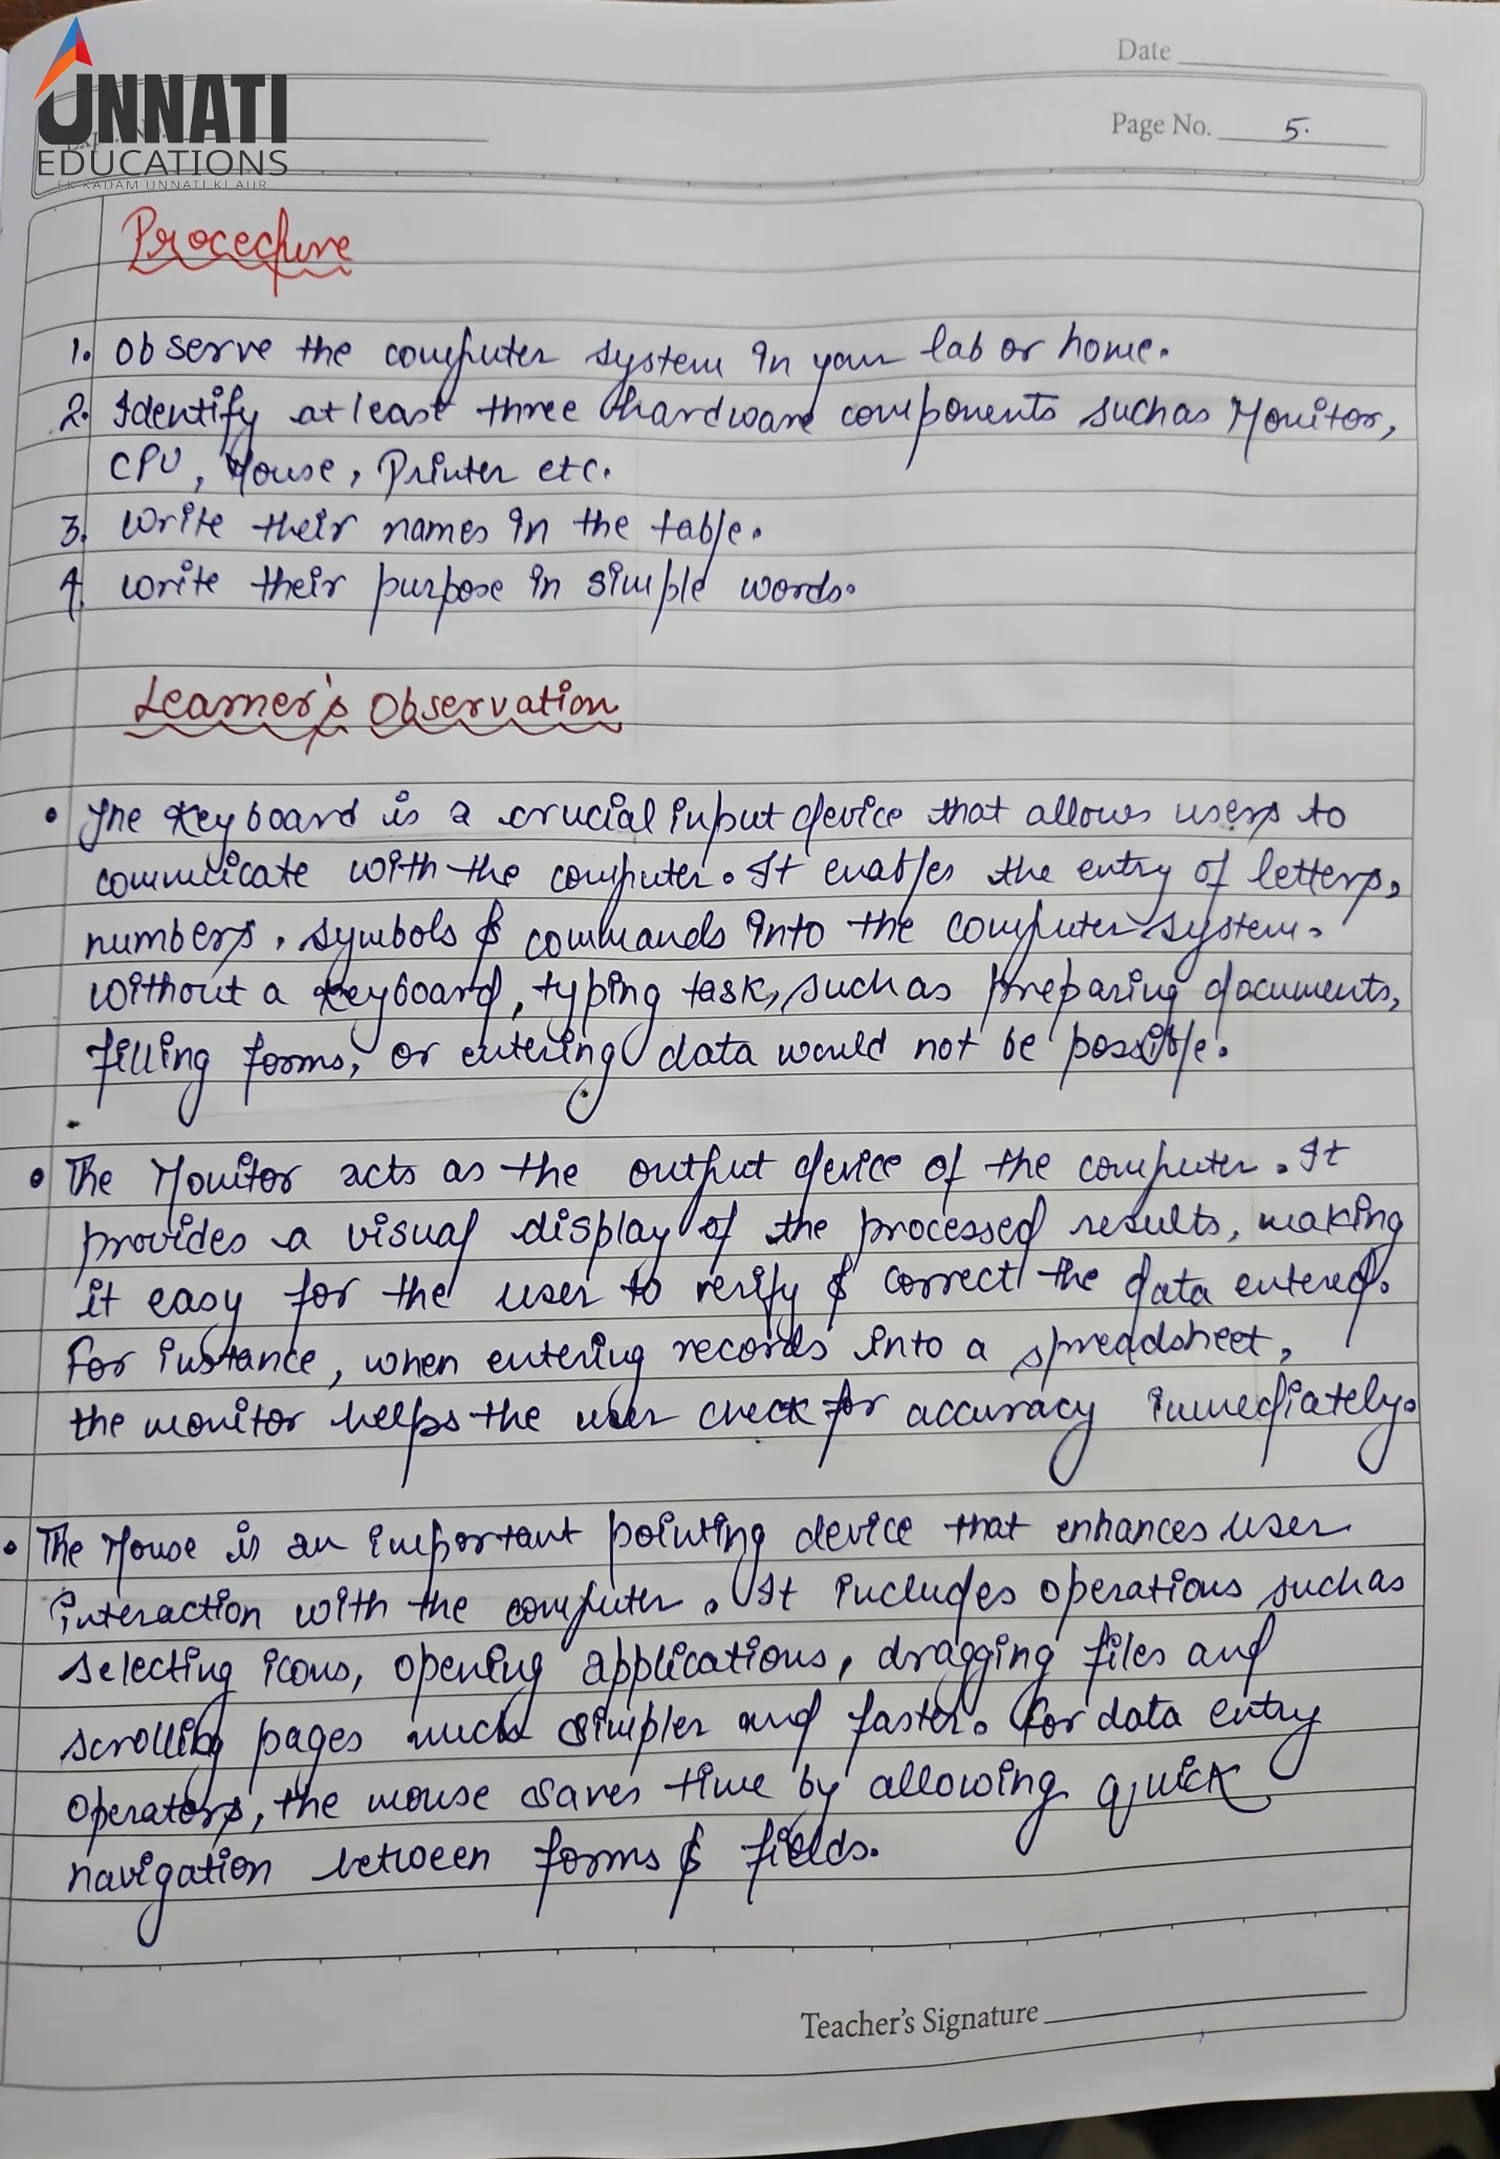 UNNATI
EDUCATIONS
EK KADAM UNNATI KI AUR
Date
Page No. 5.
Procedure
1. Observe the computer system in your lab or home.
2. Identify at least three hardware components such as Monitor,
CPU, Mouse, Printer etc.
3. Write their names in the table.
4. Write their purpose in simple words.
Learner's Observation
• The Keyboard is a crucial input device that allows users to
commuicate with the computer. It enables the entry of letters,
numbers, symbols & commands into the computer system.
Without a keyboard, typing task, such as preparing documents,
filling forms, or entering data would not be possible.
• The Monitor acts as the output device of the computer. It
provides a visual display of the processed results, making
it easy for the user to verify & correct the data entered.
For instance, when entering records into a spreadsheet,
the monitor helps the user check for accuracy immediately.
• The Mouse is an important pointing device that enhances user
interaction with the computer. It includes operations such as
selecting icons, opening applications, dragging files and
scrolling pages much simpler and faster. For data entry
operators, the mouse saves time by allowing quick
navigation between forms & fields.
Teacher's Signature